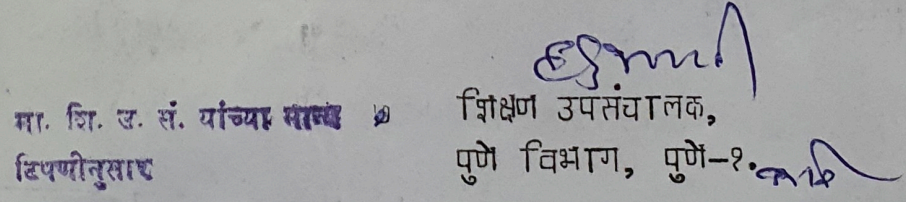 मा. शि. उ. सं. यांच्या मान्य
टिपणीनुसार
शिक्षण उपसंचालक,
पुणे विभाग, पुणे-१.